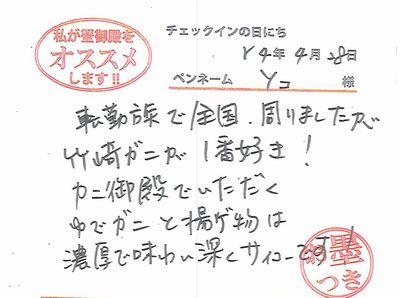 私が蟹御殿を
オススメ
します!!
チェックインの日にち
Y4年4月28日
ペンネーム Yコ 様
転勤族で全国、周りましたが
竹崎ガニが1番好き!
カニ御殿でいただく
ゆでガニと揚げ物は
濃厚で味わい深くサイコーです!
墨
つき